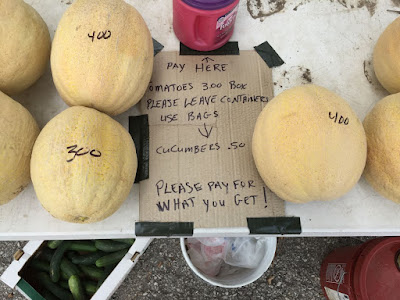 400
PAY HERE
TOMATOES 3.00 BOX
PLEASE LEAVE CONTAINERS
USE BAGS
400
300
CUCUMBERS .50
PLEASE PAY FOR
WHAT YOU GET!